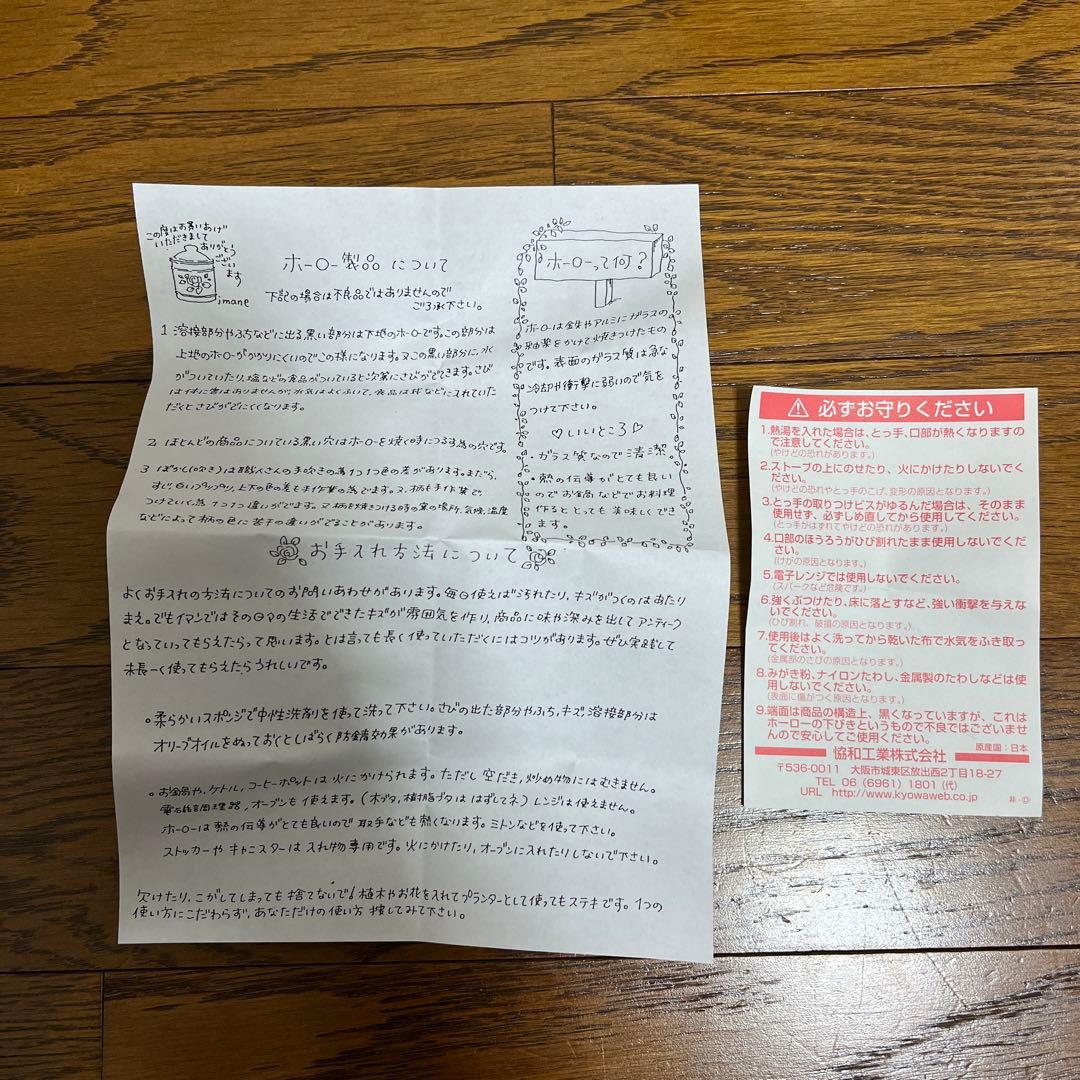 この度はお買いあげ
いただきまして
ありがとう
ございます
imane
ホーロー製品について
下記の場合は不良品ではありませんので
ご了承下さい。
1 溶接部分やふちなどに出る黒い部分は下地のホーローです。この部分は
上地のホーローがかかりにくいのでこの様になります。又この黒い部分に、水
がついていたり、塩などの食品がついていると次第にさびがでてきます。さび
は体に害はありませんが、水気はよくふいて、食品は袋などに入れていた
だくとさびがでにくくなります。
2 ほとんどの商品についている黒い穴はホーローを焼く時につるす為の穴です。
3 ぼかし(吹き)は職人さんの手吹きの為1つ1つ色の差があります。まだら、
すじ、白いプツプツ、上下の色の差も手作業の為でます。又、柄も手作業で、
つけていく為1つ1つ違いがでます。又柄を焼きつける時の窯の場所、気候、温度
などによって柄の色に若干の違いがでることがあります。
ホーローって何?
ホーローは金失やアルミにガラスの
釉薬をかけて焼きつけたもの
です。表面のガラス質は急な
冷却や衝撃に弱いので気を
つけて下さい。
♡いいところ♡
・ガラス質なので清潔。
・熱の伝導がとても良い
のでお鍋などでお料理
作るととっても美味しくでき
ます。
お手入れ方法について
よくお手入れの方法についてのお問いあわせがあります。毎日使えば汚れたり、キズがつくのはあたり
まえ。でもイマンではその日々の生活でできたキズが雰囲気を作り、商品に味や深みを出してアンティーク
となっていってもらえたらって思います。とは言っても長く使っていただくにはコツがあります。ぜひ実践して
末長ーく使ってもらえたらうれしいです。
。柔らかいスポンジで中性洗剤を使って洗って下さい。さびの出た部分やふち、キズ、溶接部分は
オリーブオイルをぬっておくとしばらく防錆効果があります。
。お鍋や、ケトル、コーヒーポットは火にかけられます。ただし空だき、炒め物にはむきません。
電磁調理器、オーブンも使えます。(木ブタ、樹脂ブタははずしてネ)レンジは使えません。
ホーローは熱の伝導がとても良いので取手なども熱くなります。ミトンなどを使って下さい。
ストッカーやキャニスターは入れ物専用です。火にかけたり、オーブンに入れたりしないで下さい。
欠けたり、こがしてしまっても捨てないで!植木やお花を入れてプランターとして使ってもステキです。1つの
使い方にこだわらず、あなただけの使い方 捜してみて下さい。
必ずお守りください
1.熱湯を入れた場合は、とっ手、口部が熱くなりますの
で注意してください。
(やけどの恐れがあります。)
2.ストーブの上にのせたり、火にかけたりしないでく
ださい。
(やけどの恐れやとっ手のこげ、変形の原因となります。)
3.とっ手の取りつけビスがゆるんだ場合は、そのまま
使用せず、必ずしめ直してから使用してください。
(とっ手がはずれてやけどの恐れがあります。)
4.口部のほうろうがひび割れたまま使用しないでくだ
さい。
(けがの原因となります。)
5.電子レンジでは使用しないでください。
(スパークなど危険です。)
6.強くぶつけたり、床に落とすなど、強い衝撃を与えな
いでください。
(ひび割れ、破損の原因となります。)
7.使用後はよく洗ってから乾いた布で水気をふき取っ
てください。
(金属部のさびの原因となります。)
8.みがき粉、ナイロンたわし、金属製のたわしなどは使
用しないでください。
(表面に傷がつく原因となります。)
9.端面は商品の構造上、黒くなっていますが、これは
ホーローの下びきというもので不良ではございませ
んので安心してご使用ください。
原産国:日本
協和工業株式会社
〒536-0011 大阪市城東区放出西2丁目18-27
TEL 06(6961)1801(代)
URL http://www.kyowaweb.co.jp
非-Ⓓ